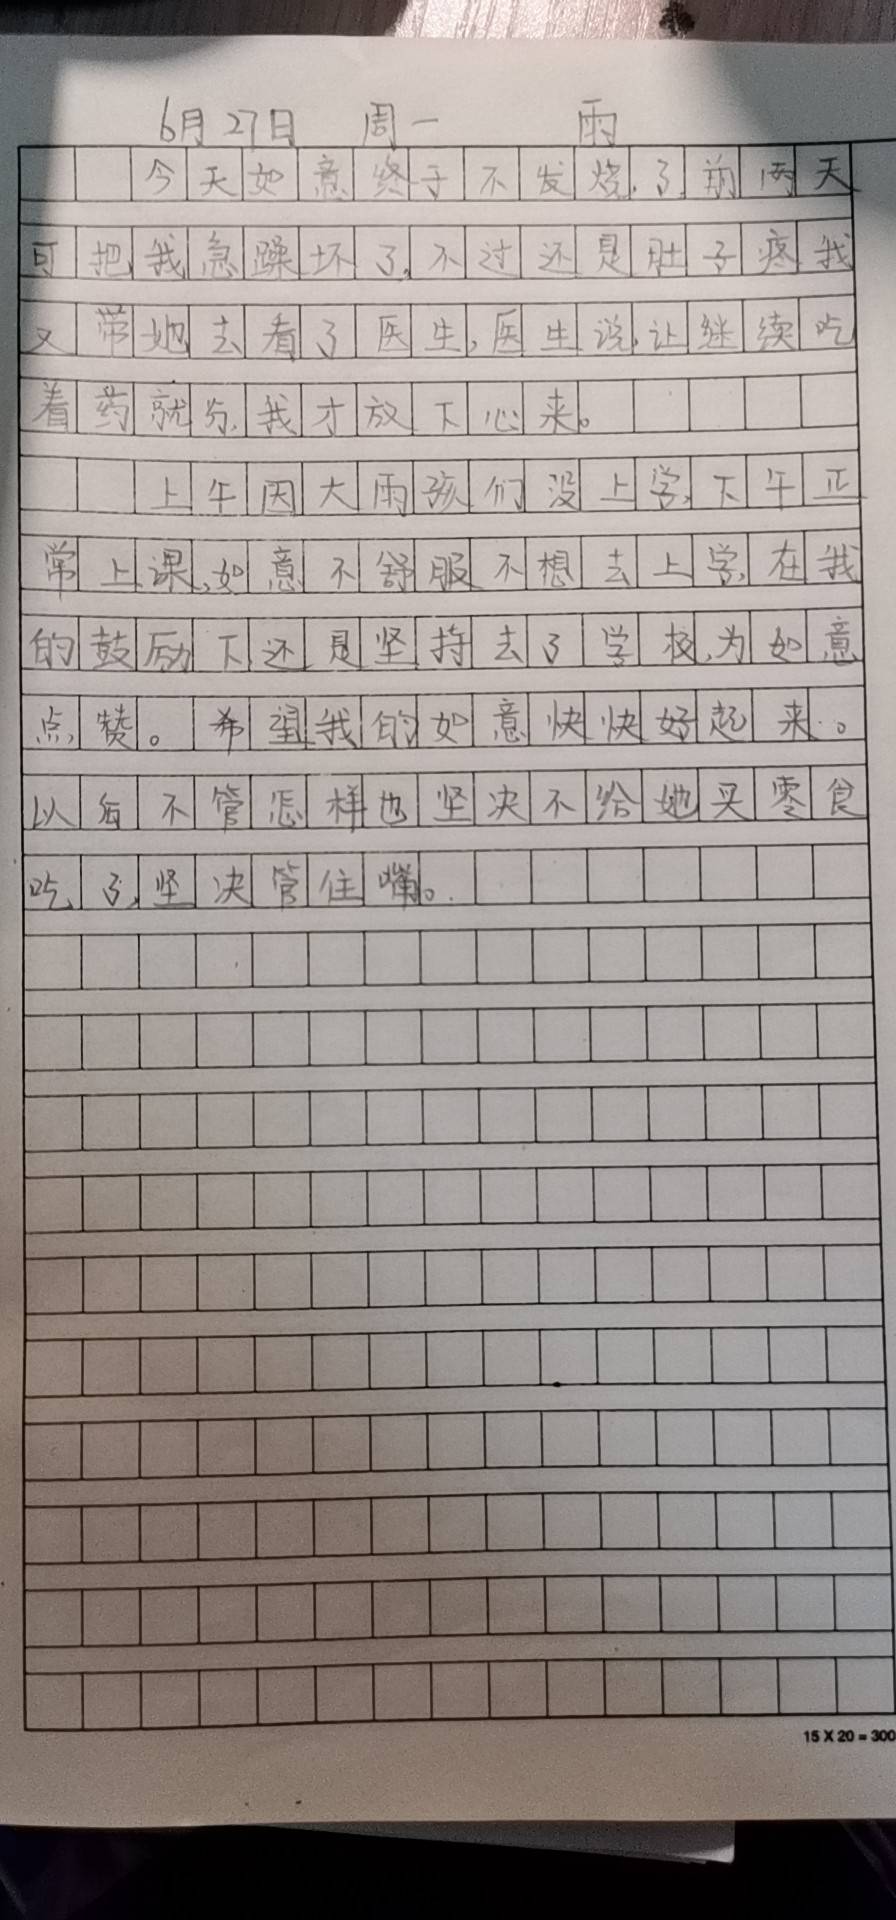 6月27日 周一 雨
今天如意终于不发烧,了,前两天
可把我急躁坏了,不过还是肚子疼我
又带她去看了医生,医生说,让继续吃
着药就行,我才放下心来。
上午因大雨孩们没上学,下午正
常上课,如意不舒服不想去上学,在我
的鼓励下还是坚持去了学校,为如意
点赞。希望我的如意快快好起来。
以后不管怎样也坚决不给她买零食
吃了,坚决管住嘴。
15 X 20 = 300